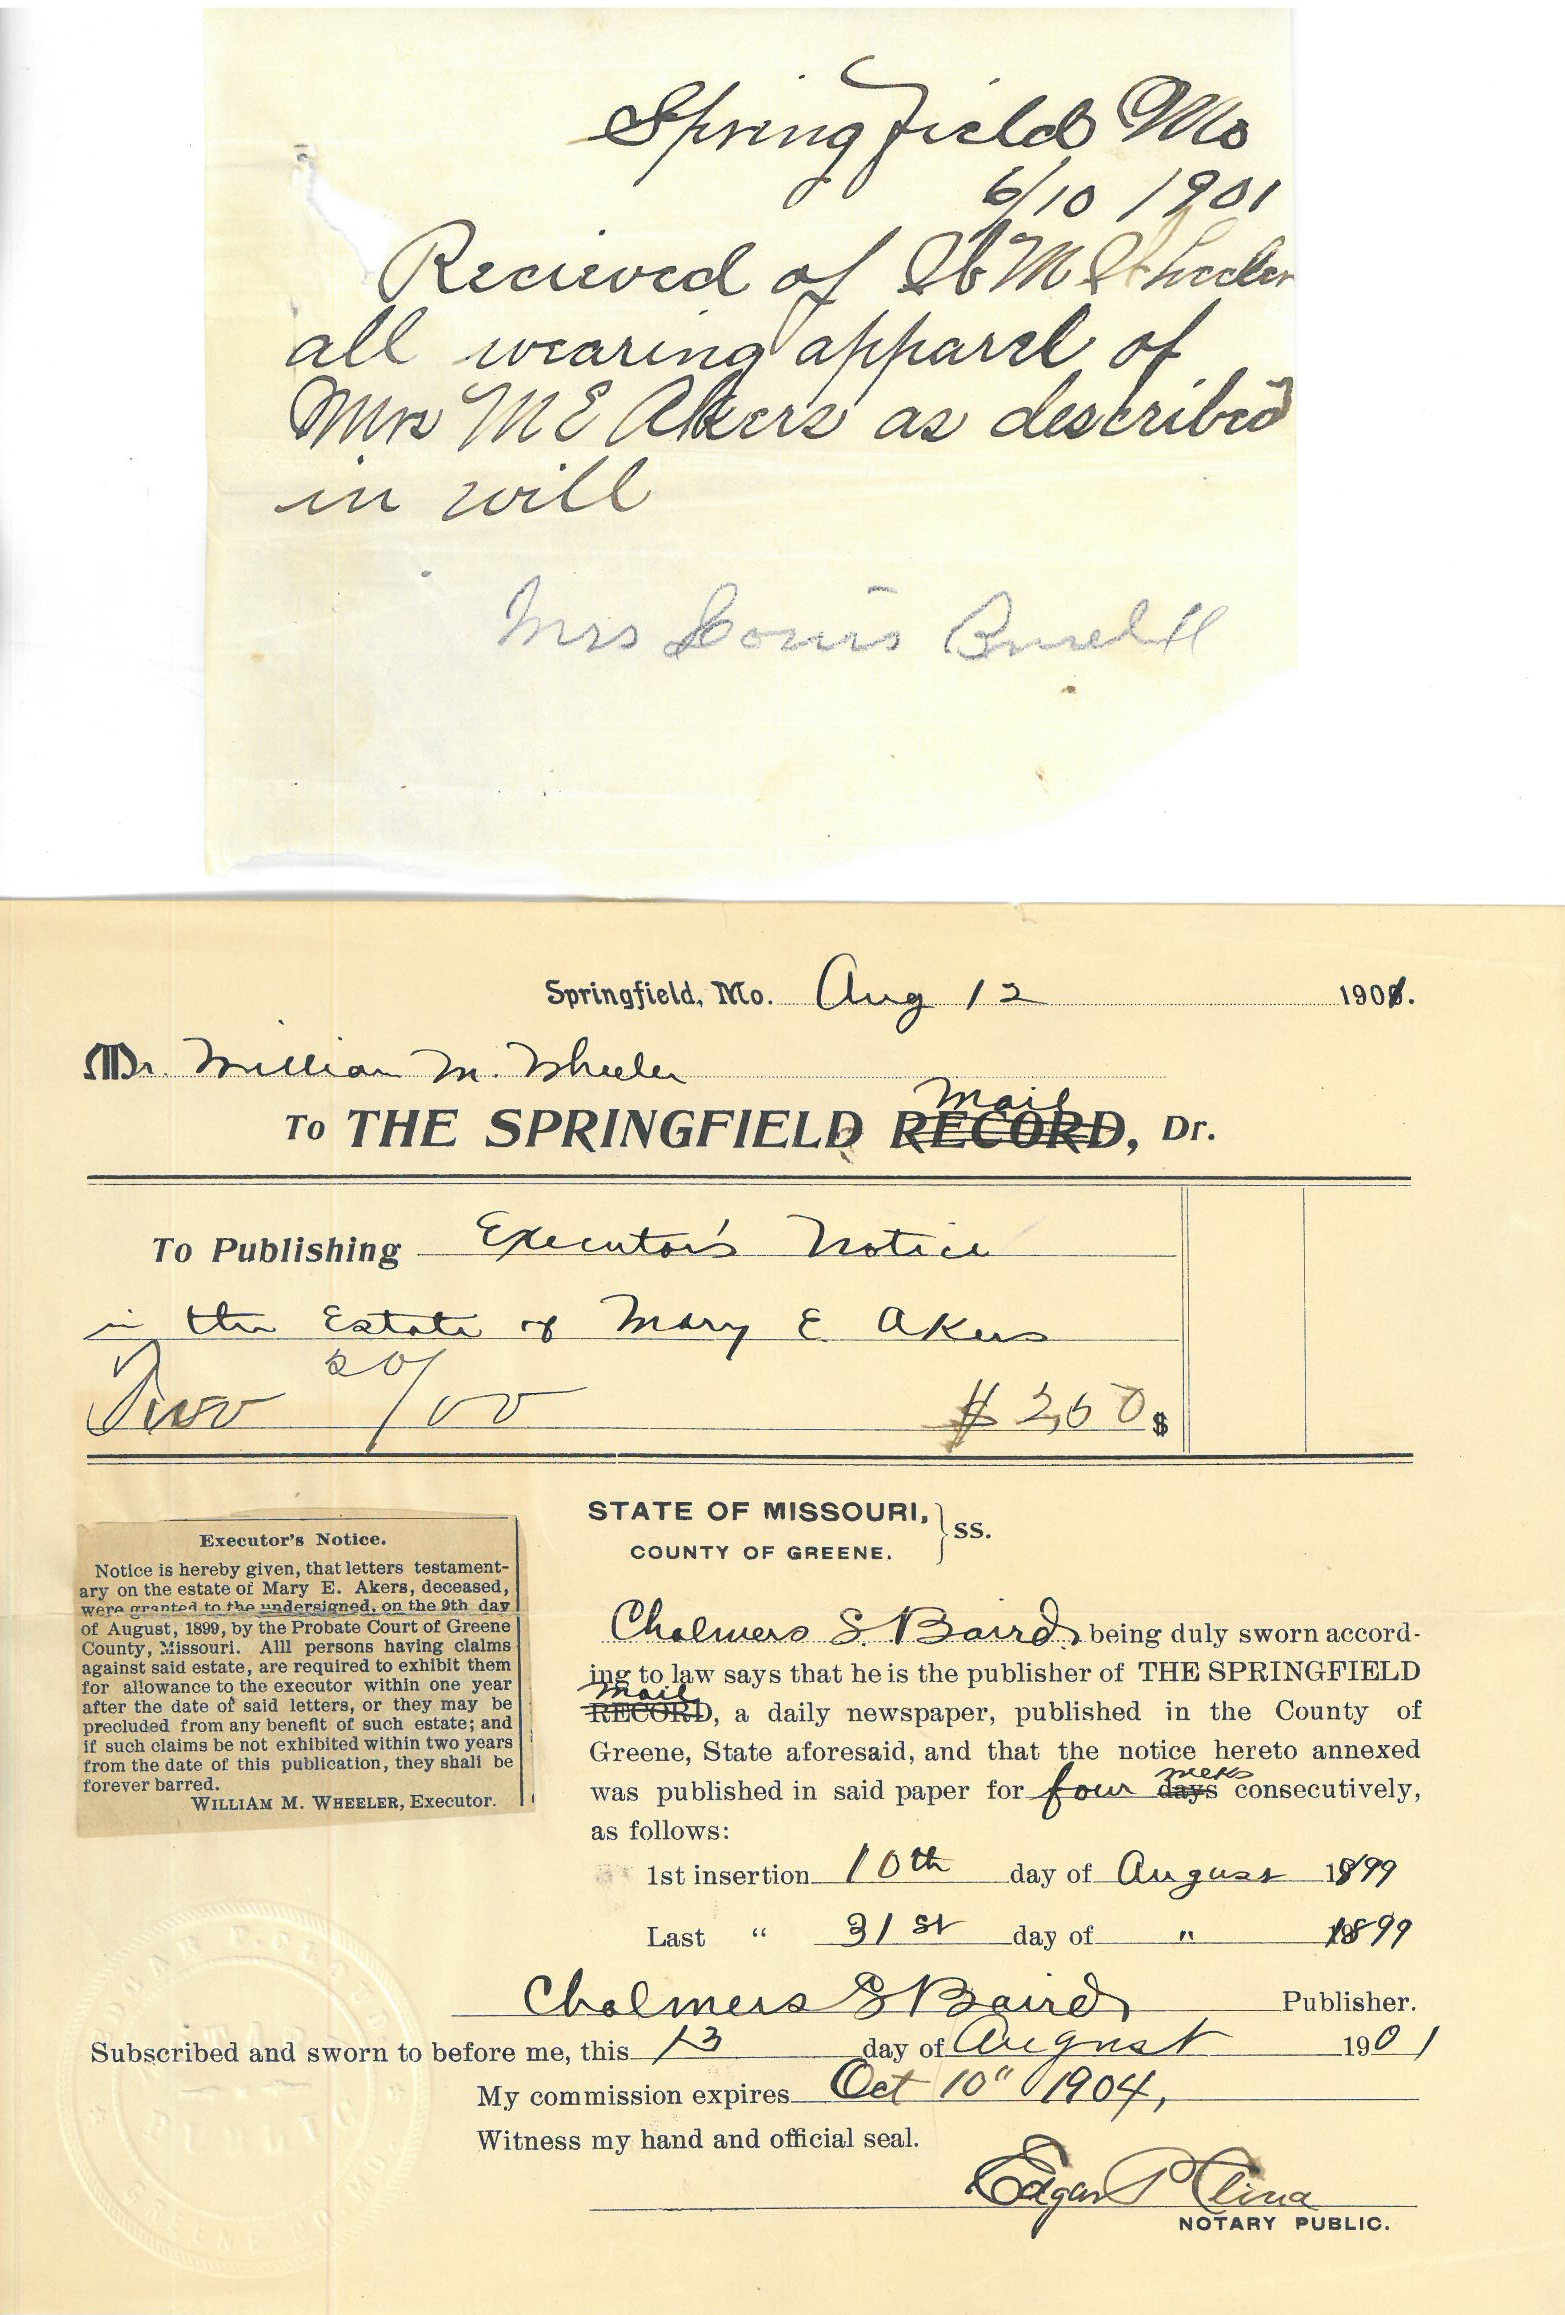 Springfield Mo
6/10 1901
Recieved of W M Wheeler
all wearing apparel of
Mrs M E Akers as described
in will
Mrs Louis
Springfield, Mo. Aug 12 1901.
Mr. William M. Wheeler
Mail
To THE SPRINGFIELD RECORD, Dr.
To Publishing Executor's Notice
in the Estate of Mary E. Akers
Two 50/100 $ 2,50 $
Executor's Notice.
Notice is hereby given, that letters testament-
ary on the estate of Mary E. Akers, deceased,
were granted to the undersigned, on the 9th day
of August, 1899, by the Probate Court of Greene
County, Missouri. Alll persons having claims
against said estate, are required to exhibit them
for allowance to the executor within one year
after the date of said letters, or they may be
precluded from any benefit of such estate; and
if such claims be not exhibited within two years
from the date of this publication, they shall be
forever barred.
WILLIAM M. WHEELER, Executor.
STATE OF MISSOURI, } ss.
COUNTY OF GREENE.
Chalmers S. Baird being duly sworn accord-
ing to law says that he is the publisher of THE SPRINGFIELD
Mail
RECORD, a daily newspaper, published in the County of
Greene, State aforesaid, and that the notice hereto annexed
weeks
was published in said paper for four days consecutively,
as follows:
1st insertion 10th day of August 1899
Last " 31st day of " 1899
Chalmers S Baird Publisher.
Subscribed and sworn to before me, this 13 day of August 1901
My commission expires Oct 10" 1904,
Witness my hand and official seal.
Edgar P
NOTARY PUBLIC.